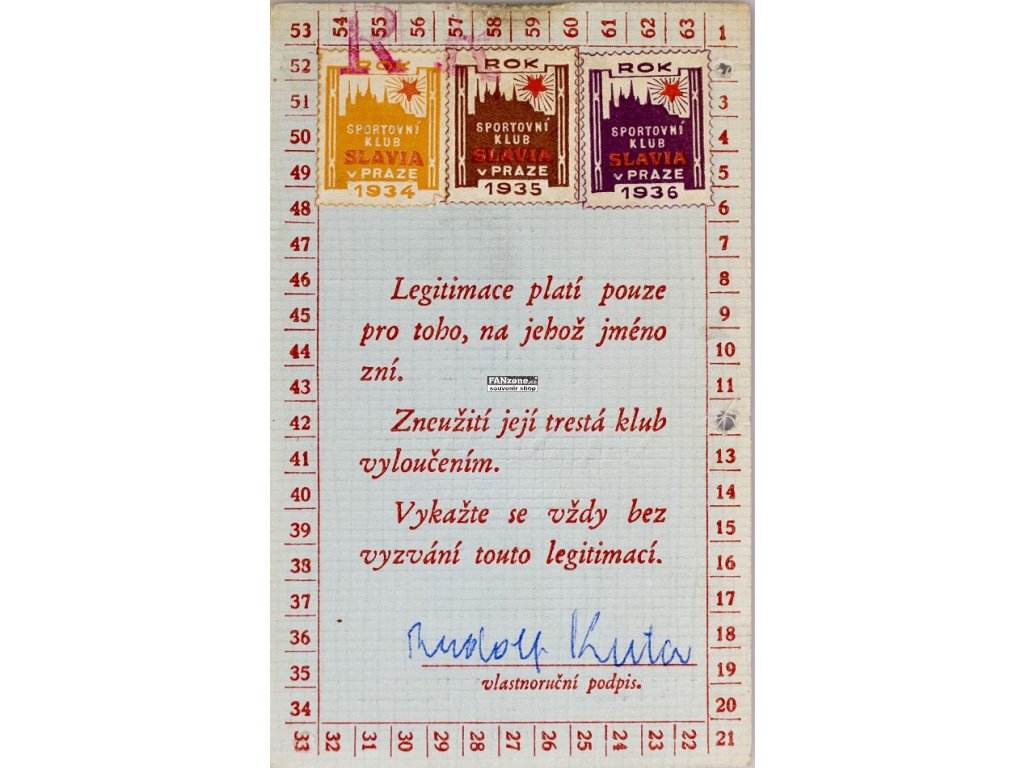 53 54 55 56 57 58 59 60 61 62 63 1
R
52
51
50
49
48
47
46
45
44
43
42
41
40
39
38
37
36
35
34
ROK
SPORTOVNÍ
KLUB
SLAVIA
V PRAZE
1934
ROK
SPORTOVNÍ
KLUB
SLAVIA
V PRAZE
1935
ROK
SPORTOVNÍ
KLUB
SLAVIA
V PRAZE
1936
Legitimace platí pouze
pro toho, na jehož jméno
zní.
FANzone.cz
souvenir shop
Zneužití její trestá klub
vyloučením.
Vykažte se vždy bez
vyzvání touto legitimací.
Rudolf Kuta
vlastnoruční podpis.
3
4
5
6
7
8
9
10
11
13
14
15
16
17
18
19
20
33 32 31 30 29 28 27 26 25 24 23 22 21